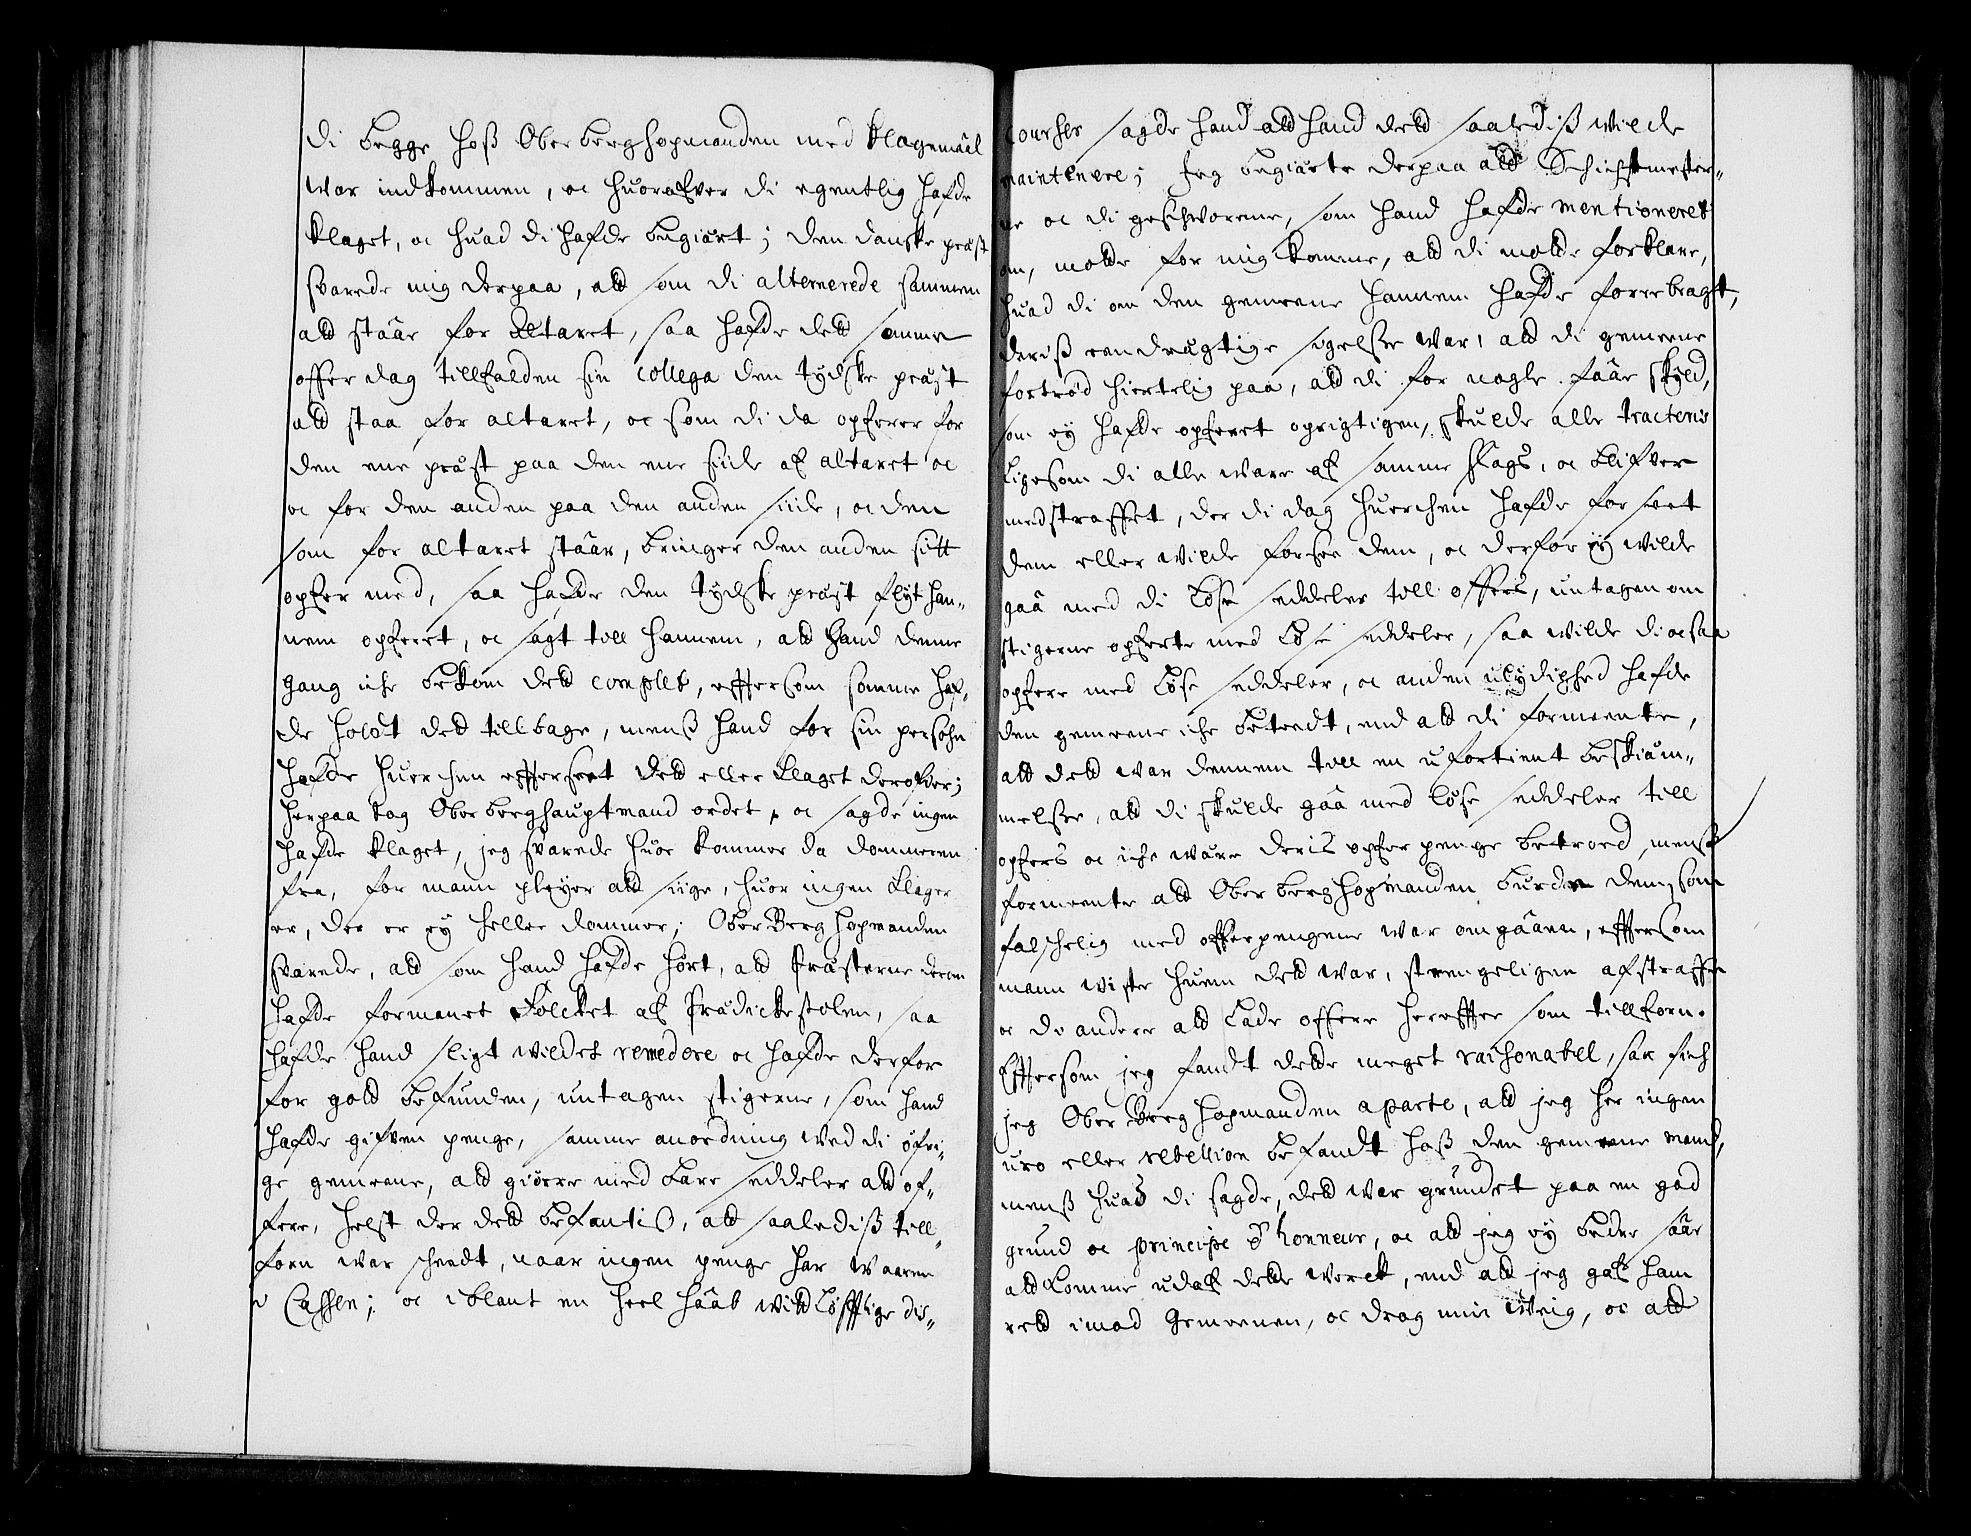 di begge hoß Oberberghopmanden med Klagemaal
war indkommen, oc huorafver di egentlig hafde
klaget, oc huad di hafde begiært; den danske præst
svarede mig derpaa, ald som di alternerede sammen
ald staar for altaret, saa hafde deld samme
offer dag tillfalden sin collega den tydske præst
ald staa for altaret, oc som di da opferer for
den ene præst paa den ene siide af altaret oc
oc for den anden paa den anden siide, oc den
som for altaret staar, bringer den anden sitt
opfer med, saa hafde den tydske præst flyt han-
nem opferet, oc sagt till hannem, ald hand denne
gang iche bekom deld complet, effersom somme haf-
de holdt deld tillbage, menß hand for sin persohn
hafde huerchen efferseet deld eller klaget derofver;
herpaa tog Oberberghauptmand ordet, oc sagde ingen
hafde klaget, jeg svarede huor kommer da dommeren
fra, for mann pleyer ald siige, huor ingen klager
er, der er ey heller dommer; OberBerghopmanden
svarede, ald som hand hafde hørt, ald Præsterne derom
hafde formanet Folcket af Prædickestolen, saa
hafde hand sligt wildet remedere oc hafde derfor
for gold befunden, untagen stigerne, som hand
hafde gifven penge, samme anordning wed di øfri-
ge gemeene, ald giøre med bare seddeler ald of-
fere, helst der deld befantis, ald saalediß till-
forn war scheedt, naar ingen penge har waaren
i Cassen; oc iblant en heel haab widløfftige dis-
courser sagde hand ald hand deld saalediß wilde
maintenere; Jeg begiærte derpaa ald Schichtmester-
ne oc di geschworene, som hand hafde mentioneret
om, motte for mig komme, ald di motte forklare,
huad di om den gemeene hannem hafde forrebragt,
deriß eendrægtige sigelse war, ald di gemeene
fortrød hiertelig paa, ald di for nogle faa skyld,
som ey hafde opferet oprigtigen, skulde alle tracteris
ligesom di alle ware af samme slags, oc blifver
medstraffet, der di dog huerchen hafde forseet
dem eller wilde forsee dem, oc derfor ey wilde
gaa med di løse seddeler till offers, untagen om
stigerne opferte med løse seddeler, saa wilde di ocsaa
opfere med løse seddeler, oc anden ulydighed hafde
den gemeene iche beteedt, end ald di formeente,
ald deld war dennem till en ufortient beskiæm-
melse, ald di skulde gaa med løse seddeler till
opfers oc iche ware deris opfer penge betroed, menß
formeente ald Oberberghopmanden burde dem, som
falschelig med offerpengene war omgaaen, effersom
mann wiste huem deld war, strengeligen afstraffe
oc de andere ald lade offere hereffter som tillforn.
Effersom jeg fandt dette meget raisonabel, saa sich
jeg OberBerghopmanden aparte, ald jeg her ingen
uro eller rebellion befandt hoß den gemeene mand,
menß huad di sagde, deld war grundet paa en god
grund oc principe d'honneur, oc ald jeg ey beder saae
ald komme udaf dette werck, end ald jeg gaf ham
reld imod Gemeenen, oc drog min           oc ald